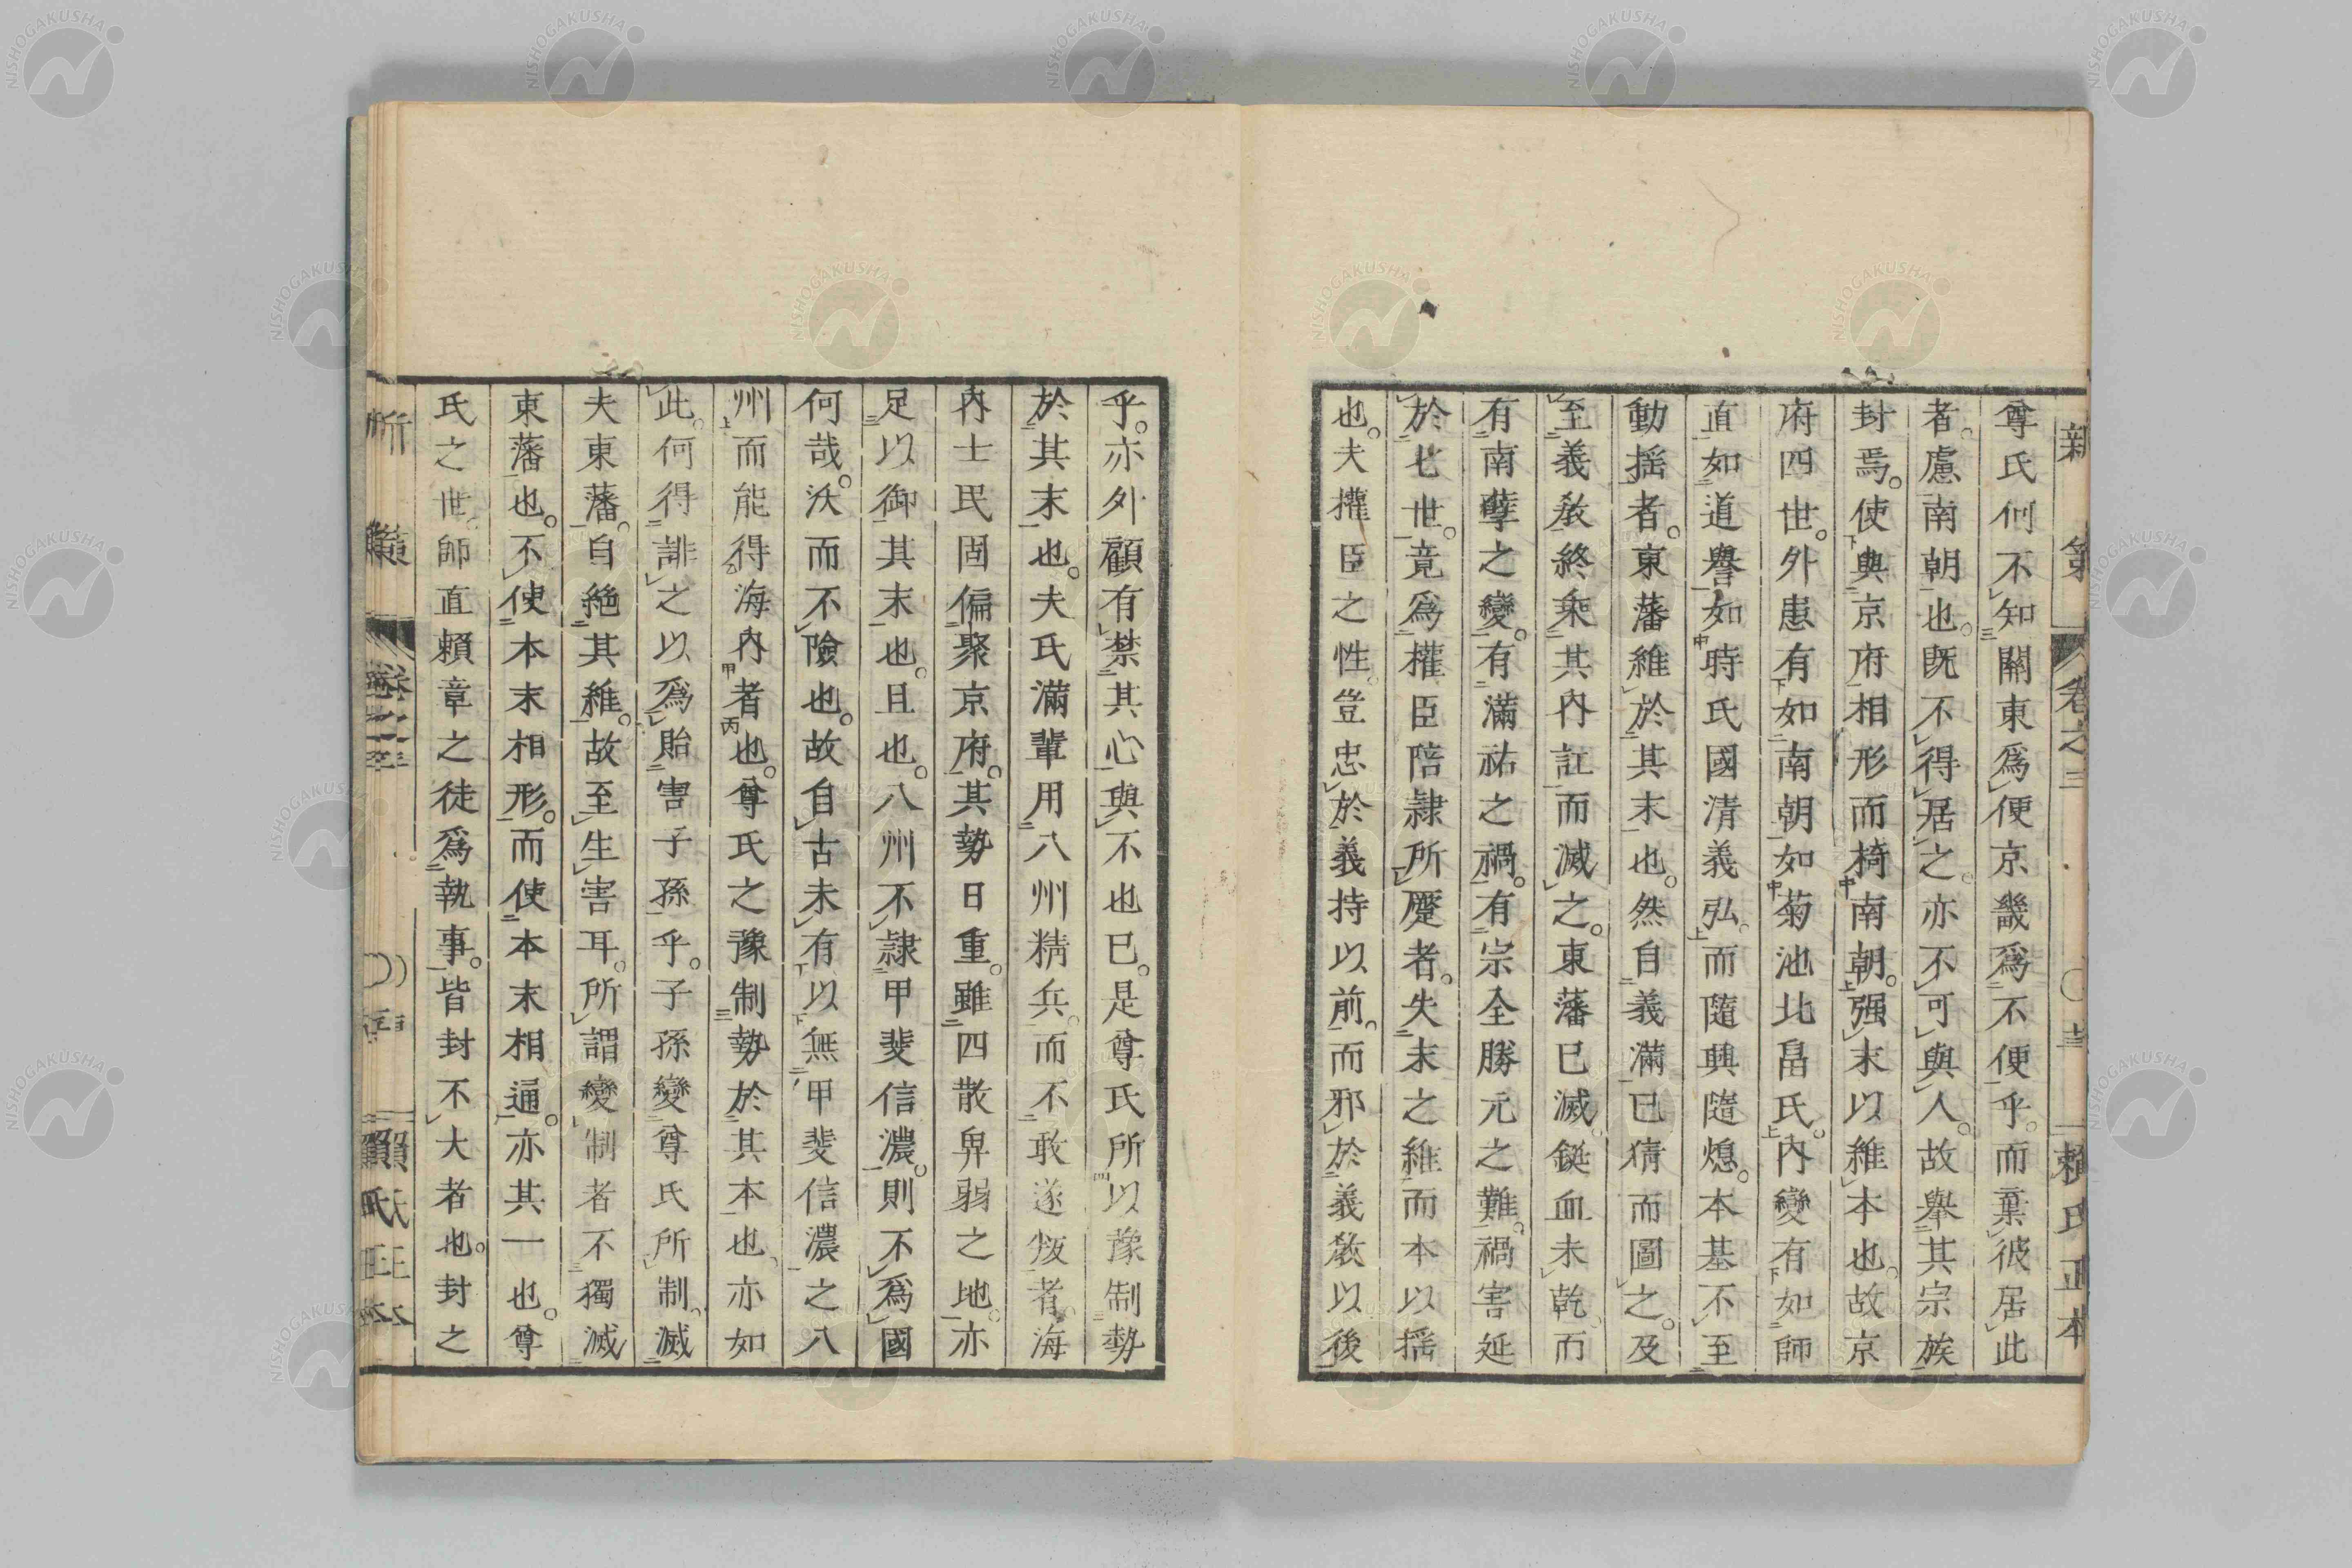 新策 卷之三 〇 賴氏正本
尊氏何不知關東爲便京畿爲不便乎。而棄彼居此
者。慮南朝也。既不得居之。亦不可與人。故舉其宗族
封焉。使與京府相形而掎南朝。强末以維本也。故京
府四世。外患有如南朝如菊池北畠氏。内變有如師
直如道譽如時氏國清義弘。而隨興隨熄。本基不至
動搖者。東藩維於其末也。然自義滿已猜而圖之。及
至義教終乘其内訌而滅之。東藩已滅鋋血未乾。而
有南孽之變。有滿祐之禍。有宗全勝元之難。禍害延
於七世。竟爲權臣陪隷所蹙者。失末之維而本以搖
也。夫權臣之性。豈忠於義持以前。而邪於義教以後
乎。亦外顧有禁其心與不也已。是尊氏所以豫制勢
於其末也。夫氏滿輩用八州精兵。而不敢遂叛者。海
内士民固偏聚京府。其勢日重。雖四散卑弱之地。亦
足以御其末也。且也。八州不隷甲斐信濃。則不爲國
何哉。沃而不險也。故自古未有以無甲斐信濃之八
州而能得海内者也。尊氏之豫制勢於其本也。亦如
此。何得誹之以爲貽害子孫乎。子孫變尊氏所制。滅
夫東藩。自絶其維。故至生害耳。所謂變制者不獨滅
東藩也。不使本末相形。而使本末相通。亦其一也。尊
氏之世。師直賴章之徒爲執事。皆封不大者也。封之